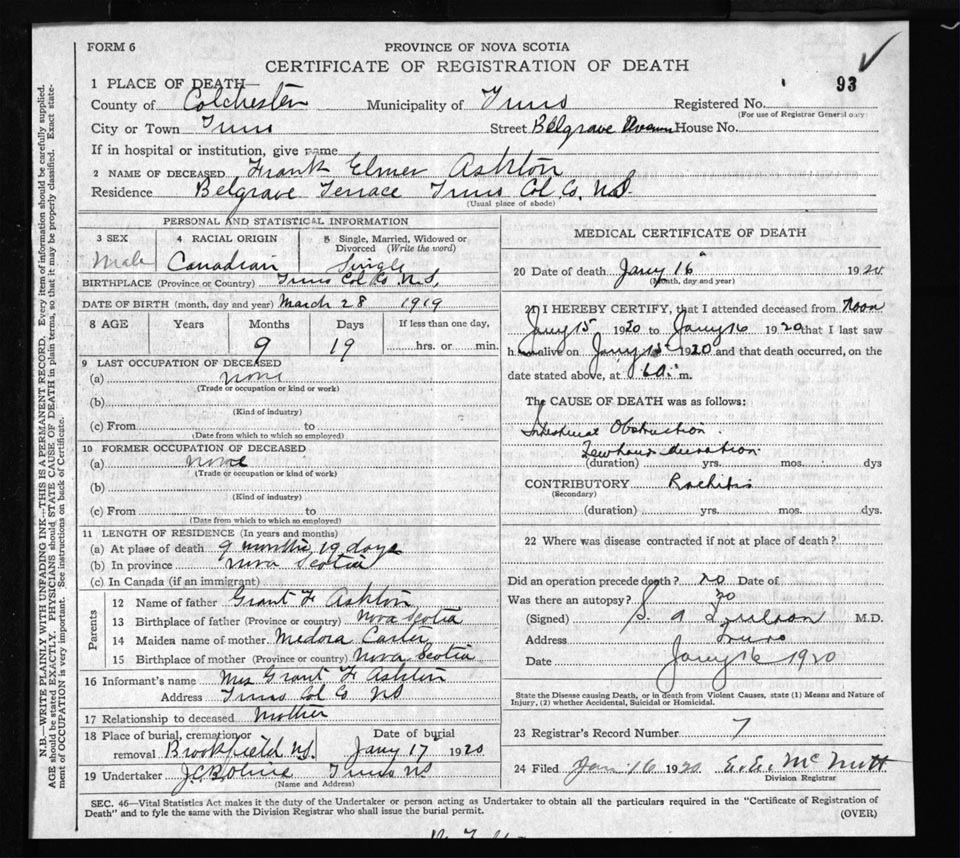 FORM 6
PROVINCE OF NOVA SCOTIA
CERTIFICATE OF REGISTRATION OF DEATH
93
1 PLACE OF DEATH—
County of Colchester Municipality of Truro Registered No.
(For use of Registrar General only)
City or Town Truro Street Belgrave Avenue House No.
If in hospital or institution, give name
2 NAME OF DECEASED Frank Elmer Ashton
Residence Belgrave Terrace Truro Col. Co. N.S.
(Usual place of abode)
PERSONAL AND STATISTICAL INFORMATION
3 SEX 4 RACIAL ORIGIN 5 Single, Married, Widowed or Divorced (Write the word)
Male Canadian Single
BIRTHPLACE (Province or Country) Truro Col. Co. N.S.
DATE OF BIRTH (month, day and year) March 28 1919
8 AGE Years Months Days If less than one day,
9 19 hrs. or min.
9 LAST OCCUPATION OF DECEASED
(a) none
(Trade or occupation or kind of work)
(b)
(Kind of industry)
(c) From to
(Date from which to which so employed)
10 FORMER OCCUPATION OF DECEASED
(a) none
(Trade or occupation or kind of work)
(b)
(Kind of industry)
(c) From to
(Date from which to which so employed)
11 LENGTH OF RESIDENCE (In years and months)
(a) At place of death 9 months 19 days
(b) In province Nova Scotia
(c) In Canada (if an immigrant)
Parents
12 Name of father Grant F Ashton
13 Birthplace of father (Province or country) Nova Scotia
14 Maiden name of mother Medora Carter
15 Birthplace of mother (Province or country) Nova Scotia
16 Informant's name Mrs Grant F Ashton
Address Truro Col Co NS
17 Relationship to deceased Mother
18 Place of burial, cremation or removal Brookfield N.S. Date of burial Jany 17 1920
19 Undertaker Truro NS
(Name and Address)
MEDICAL CERTIFICATE OF DEATH
20 Date of death Jany 16 1920
(Month, day and year)
21 I HEREBY CERTIFY, that I attended deceased from Noon
Jany 15 1920 to Jany 16 1920 that I last saw
h alive on Jany 15 1920 and that death occurred, on the
date stated above, at m.
The CAUSE OF DEATH was as follows:
Intestinal Obstruction.
Few hours duration.
(duration) yrs. mos. dys
CONTRIBUTORY Rachitis
(Secondary)
(duration) yrs. mos. dys.
22 Where was disease contracted if not at place of death?
Did an operation precede death? no Date of
Was there an autopsy? no
(Signed) S. A M.D.
Address Truro
Date Jany 16 1920
State the Disease causing Death, or in death from Violent Causes, state (1) Means and Nature of
Injury, (2) whether Accidental, Suicidal or Homicidal.
23 Registrar's Record Number 7
24 Filed Jan 16 1920 E. E. McNutt
Division Registrar
SEC. 46—Vital Statistics Act makes it the duty of the Undertaker or person acting as Undertaker to obtain all the particulars required in the "Certificate of Registration of
Death" and to fyle the same with the Division Registrar who shall issue the burial permit. (OVER)
N.B.—WRITE PLAINLY WITH UNFADING INK—THIS IS A PERMANENT RECORD. Every item of information should be carefully supplied.
AGE should be stated EXACTLY. PHYSICIANS should STATE CAUSE OF DEATH in plain terms, so that it may be properly classified. Exact state-
ment of OCCUPATION is very important. See instructions on back of Certificate.